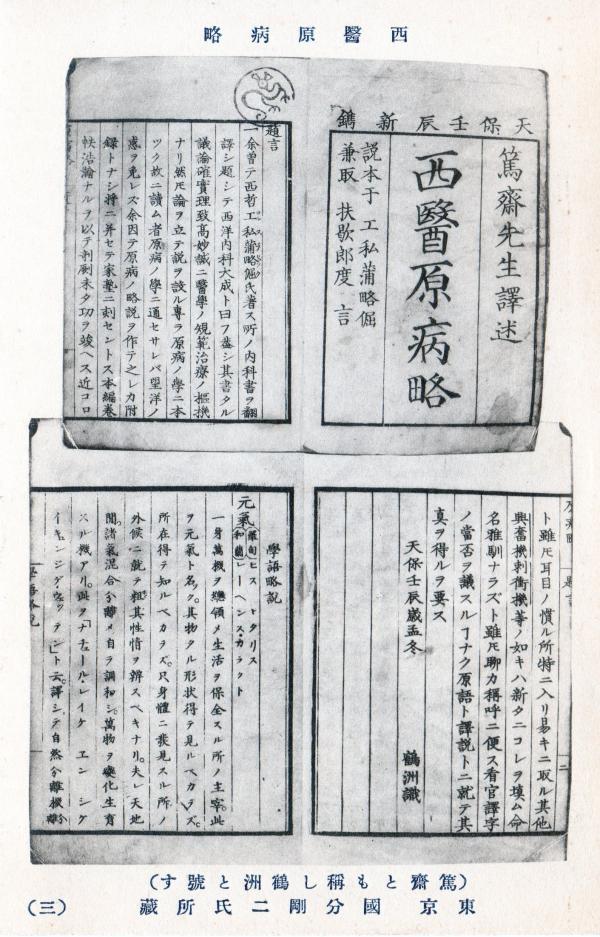 西醫原病略
天保壬辰新鐫
篤齋先生譯述
西醫原病略
說本于 工私蒲略倔
兼取 扶歇郎度 言
題言
一余曽テ西哲工私蒲略倔氏著ス所ノ内科書ヲ翻
譯シ題シテ西洋内科大成ト曰フ蓋シ其書タル
議論確實理致高妙誠ニ醫學ノ規範治療ノ樞機
ナリ然𪜈論ヲ立テ説ヲ設ル專ラ原病ノ學ニ本
ツク故ニ讀ム者原病ノ學ニ通セサレバ望洋ノ
惑ヲ免レズ余因テ原病ノ略説ヲ作テ之レカ附
録トナシ將ニ并セテ家塾ニ刻セントス本編巻
帙浩瀚ナルヲ以テ剞劂未タ功ヲ竣ヘス近コロ
ト雖𪜈耳目ノ慣ル所特ニ入リ易キニ取ル其他
興奮機刺衝機等ノ如キハ新タニコレヲ填ム命
名雅馴ナラズト雖𪜈聊カ稱呼ニ便ス看官譯字
ノ當否ヲ議スルヿナク原語ト譯説トニ就テ其
真ヲ得ルヲ要ス
天保壬辰歳孟冬
鶴洲識
二
學語略説
元氣 羅甸 ヒス ヒタリス
和蘭 レーヘンス・カラクト
一身萬機ヲ總領メ生活ヲ保全スル所ノ主宰。此
ヲ元氣ト名ク。其物タル形状得テ見ルベカラズ。
所在得テ知ルベカラズ。只身體ニ我見スル所ノ
外候ニ就テ粗其性情ヲ辨スベキナリ。夫レ天地
間諸氣混合分離メ自ラ調和シ。萬物ヲ變化生育
スル機アリ。此ヲ「ナチュール・レイケ エン シケ
イキンジゲ・ウェッテン」ト云。譯シテ自然分離機
學語略説
（篤齋とも稱し鶴洲と號す）
東京 國分剛二氏所藏
（三）